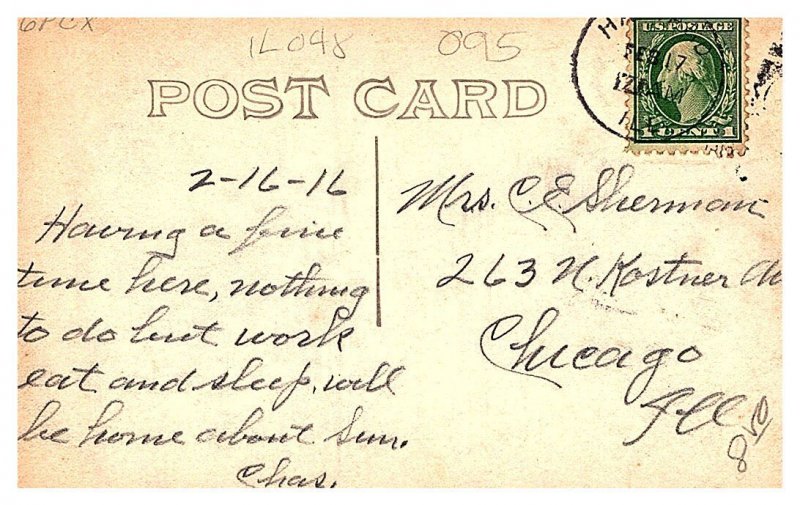 6PCX
1L048 095
POST CARD
U.S. POSTAGE
FEB 17
1 CENT 1
2-16-16
Having a fine
time here, nothing
to do but work
eat and sleep, will
be home about Sun.
Chas.
Mrs. C. E. Sherman
263 N. Kostner Av
Chicago
Ill
8.50